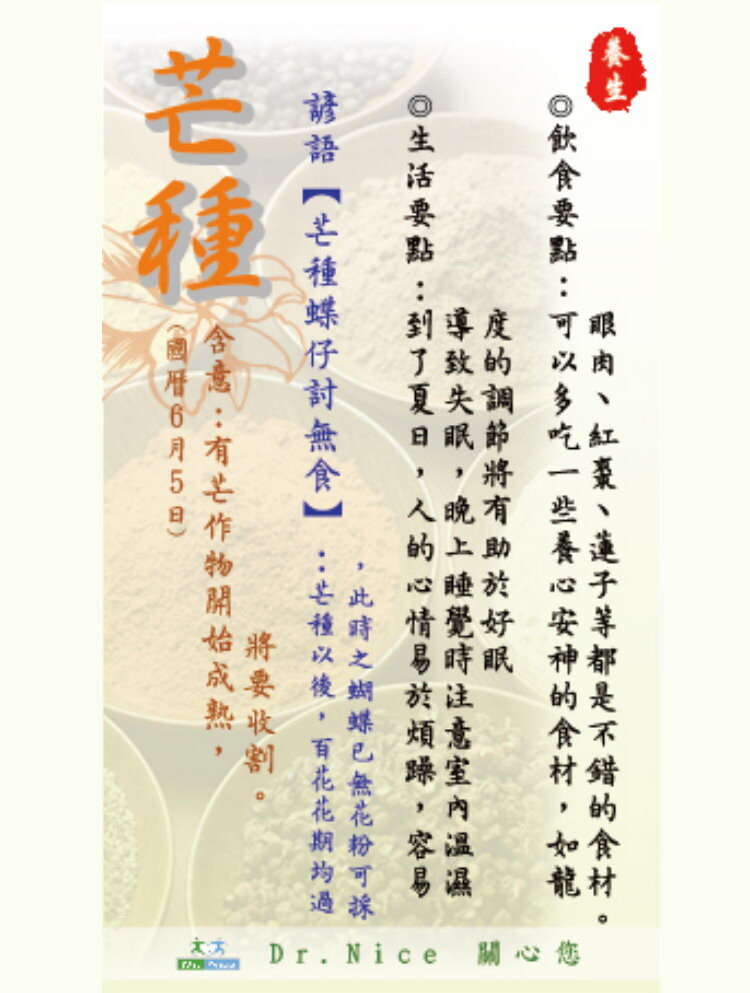 芒種
(國曆6月5日)
含意：有芒作物開始成熟，
將要收割。
諺語【芒種蝶仔討無食】：芒種以後，百花花期均過
，此時之蝴蝶已無花粉可採
◎生活要點：到了夏日，人的心情易於煩躁，容易
導致失眠，晚上睡覺時注意室內溫濕
度的調節將有助於好眠
◎飲食要點：可以多吃一些養心安神的食材，如龍
眼肉、紅棗、蓮子等都是不錯的食材。
養生
Dr.Nice 關心您